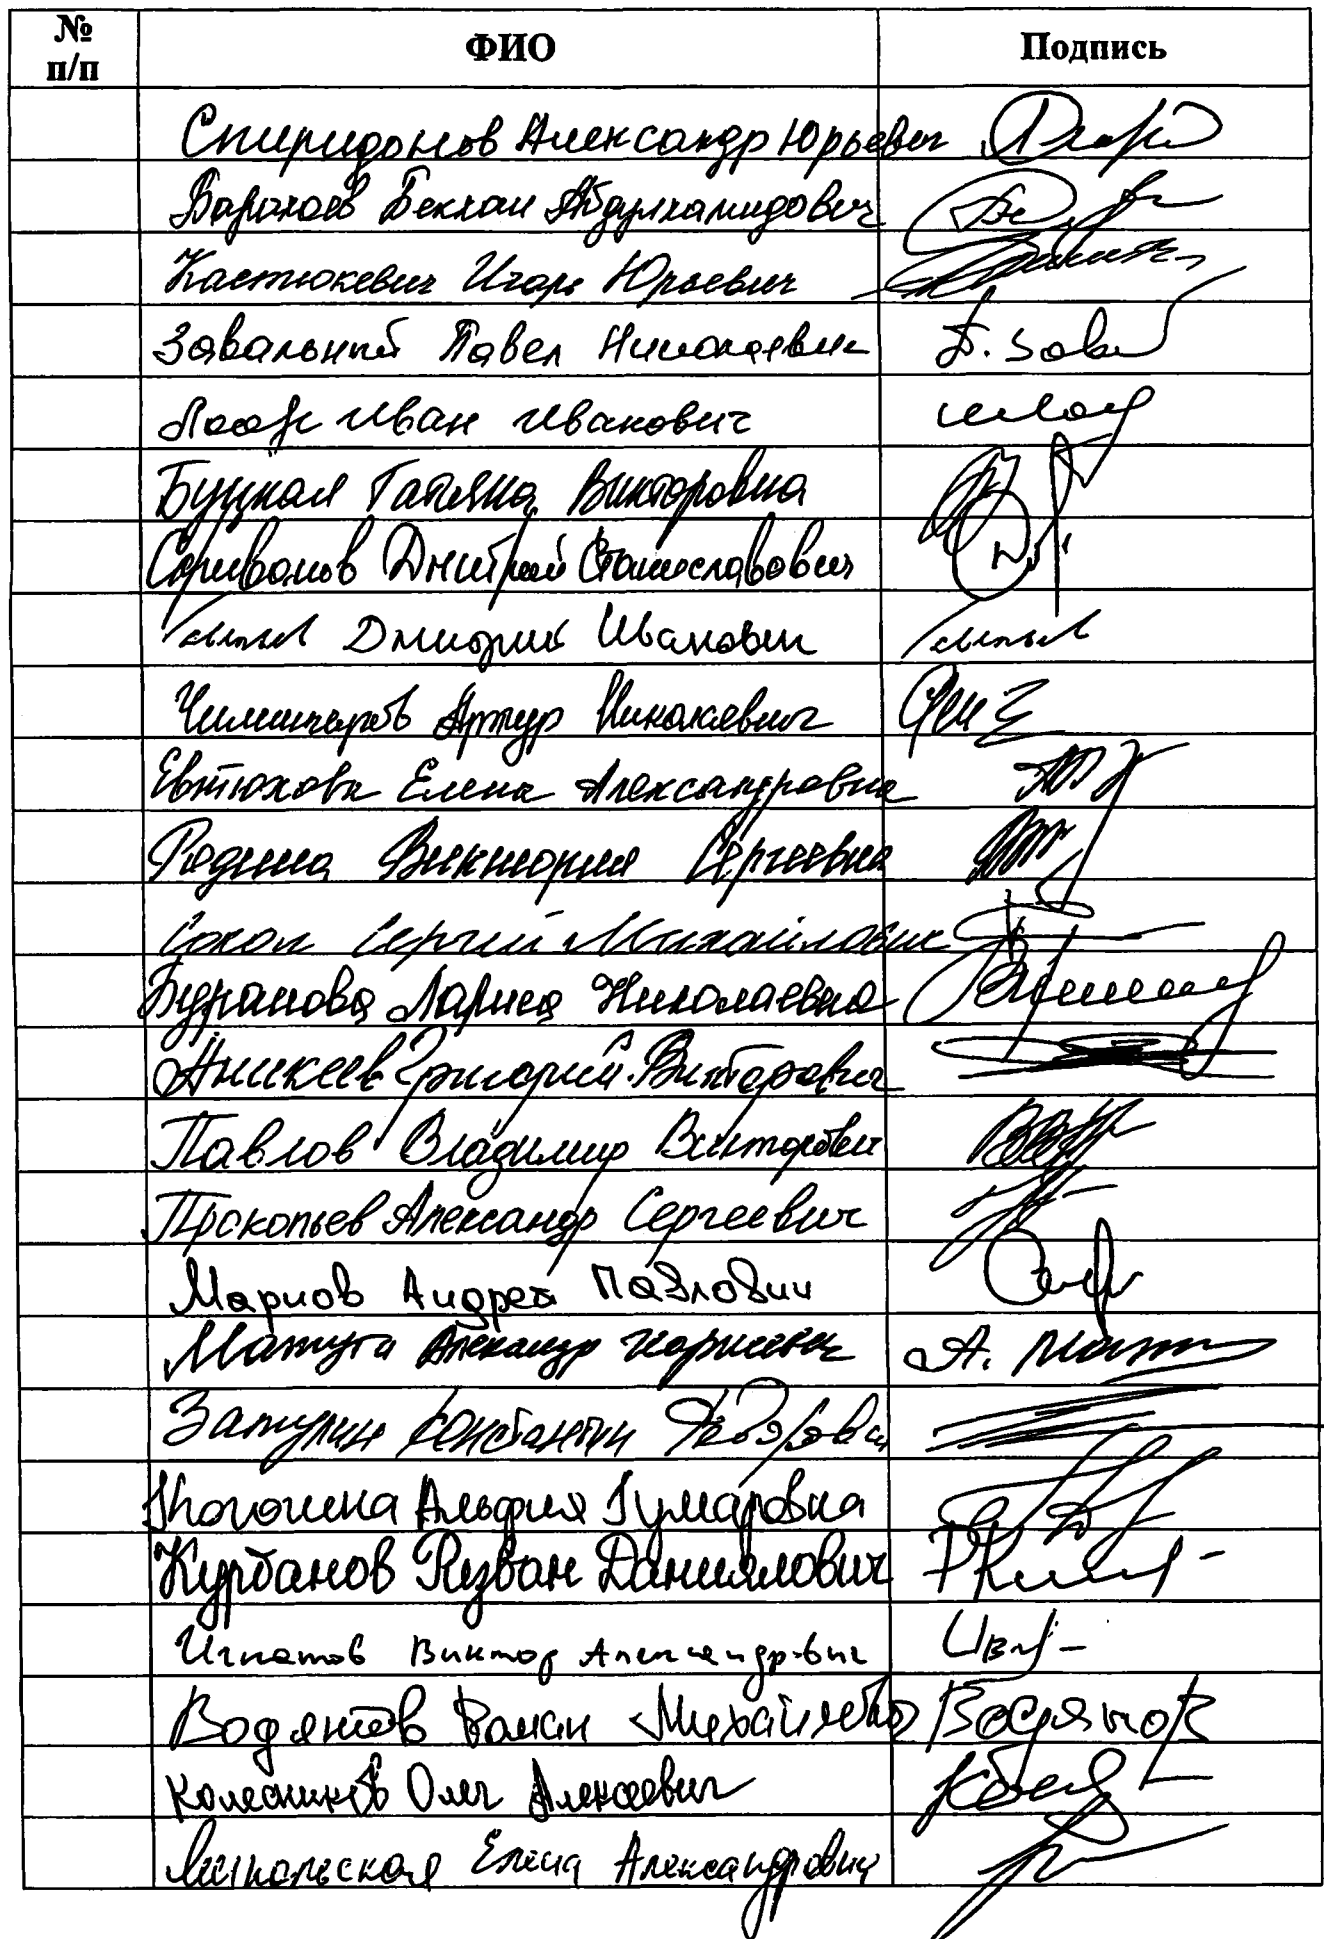 № п/п ФИО Подпись
Спиридонов Александр Юрьевич
Барахоев Бекхан Абдулхамидович
Кастюкевич Игорь Юрьевич
Завальный Павел Николаевич П. Завал
Лоор Иван Иванович
Буцкая Татьяна Викторовна
Скриванов Дмитрий Станиславович
Дмитрий Иванович
Чилингаров Артур Николаевич
Евтюхова Елена Александровна
Родина Виктория Сергеевна
Сокол Сергей Михайлович
Буранова Лариса Николаевна
Аникеев Григорий Викторович
Павлов Владимир Викторович
Прокопьев Александр Сергеевич
Марков Андрей Павлович
Мажуга Александр Георгиевич А. Маж
Затулин Константин
Когогина Альфия Гумаровна
Курбанов Ризван Даниялович
Игнатов Виктор Александрович
Водянов Роман Михайлович Водянов
Колесников Олег Алексеевич
Ямпольская Елена Александровна